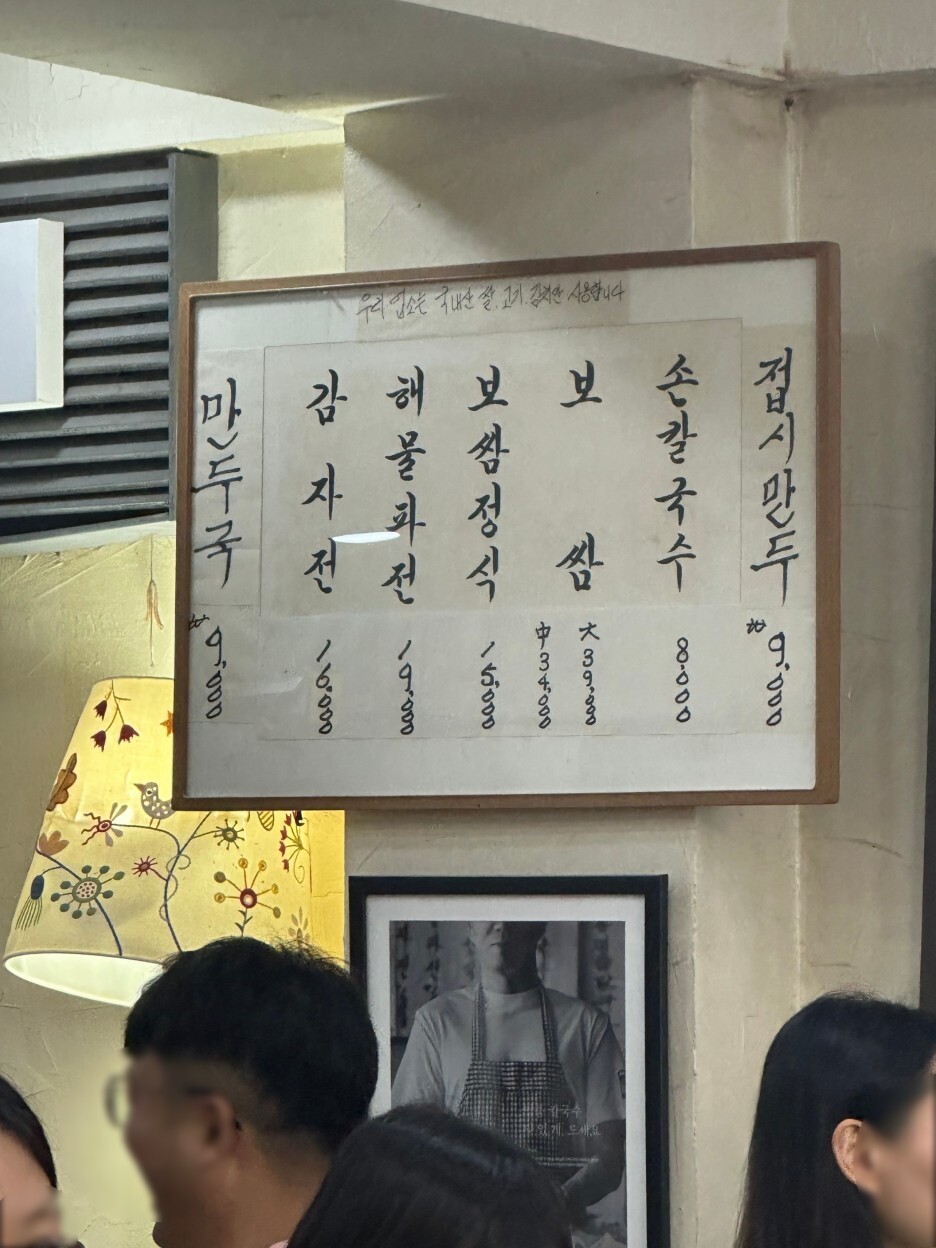 우리 업소는 국내산 쌀, 고기, 김치만 사용합니다
접시만두 9,000
손칼국수 8,000
보쌈 大 39,000 中 34,000
보쌈정식 15,000
해물파전 19,000
감자전 16,000
만두국 9,000
칼국수
있게 드세요